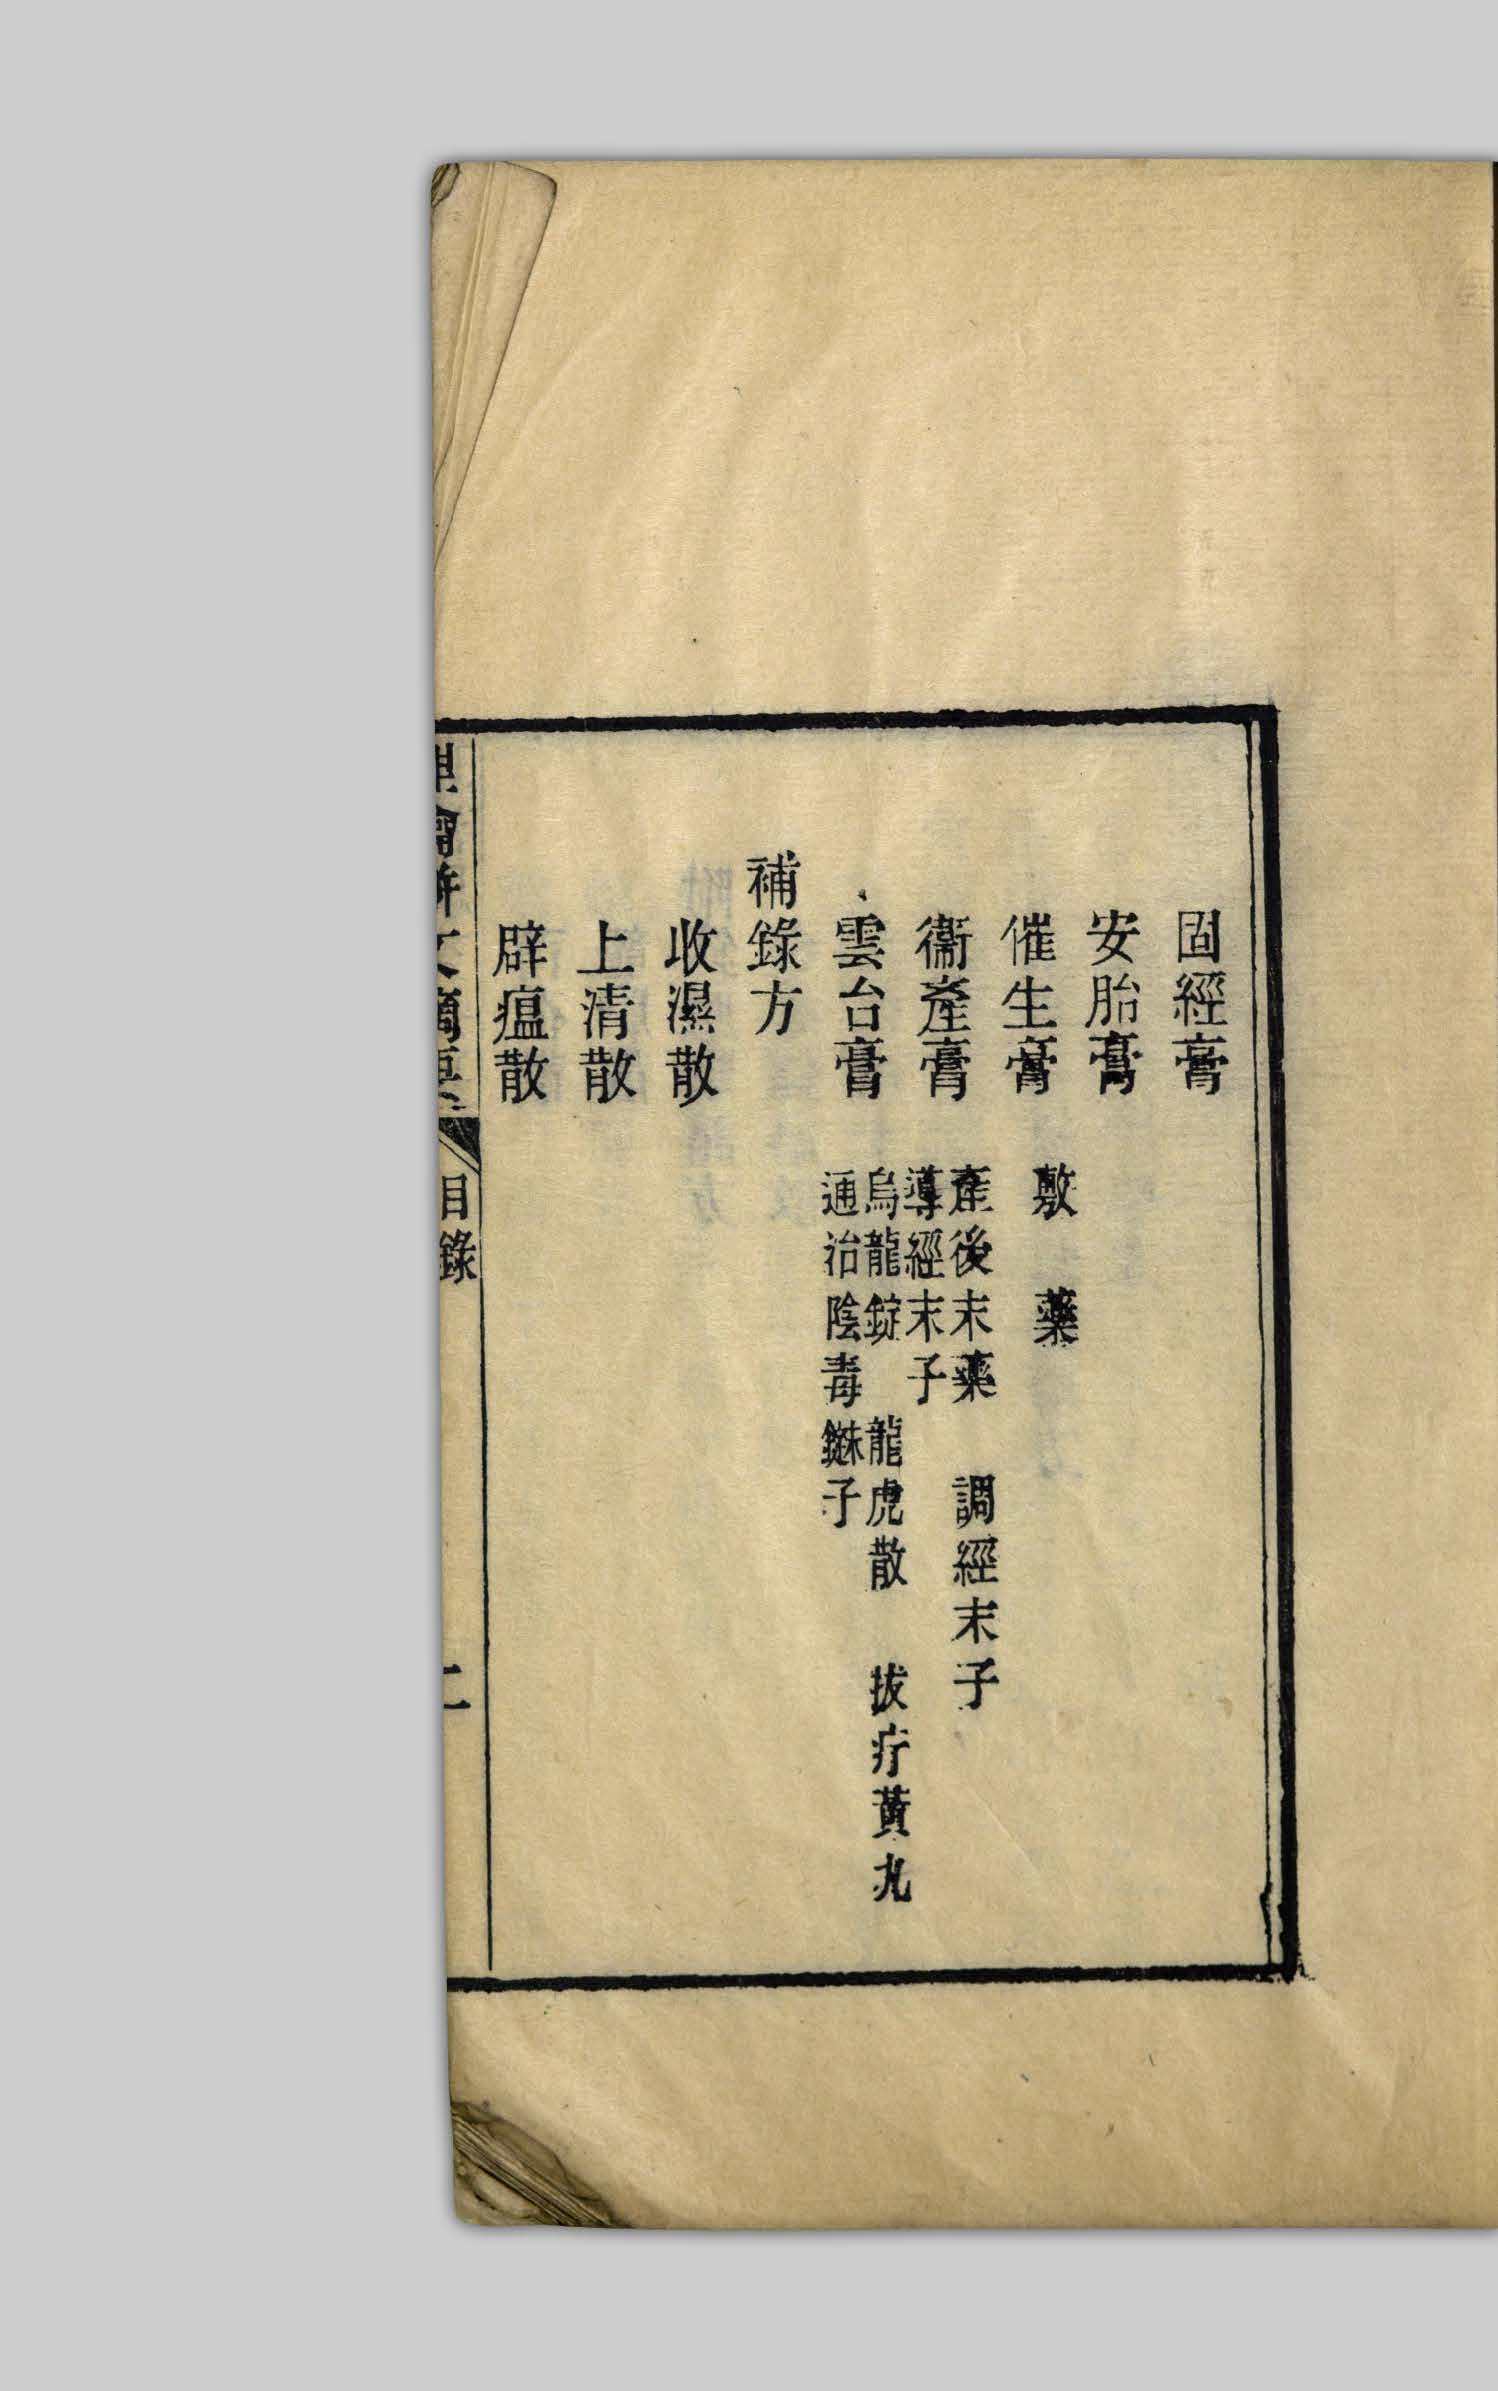 固經膏
安胎膏
催生膏　敷　藥
衞產膏　產後末藥　調經末子
導經末子
雲台膏　烏龍錠　龍虎散　拔疔黃丸
通治陰毒鎹子
補錄方
收濕散
上清散
辟瘟散
理瀹駢文摘要
目錄
二